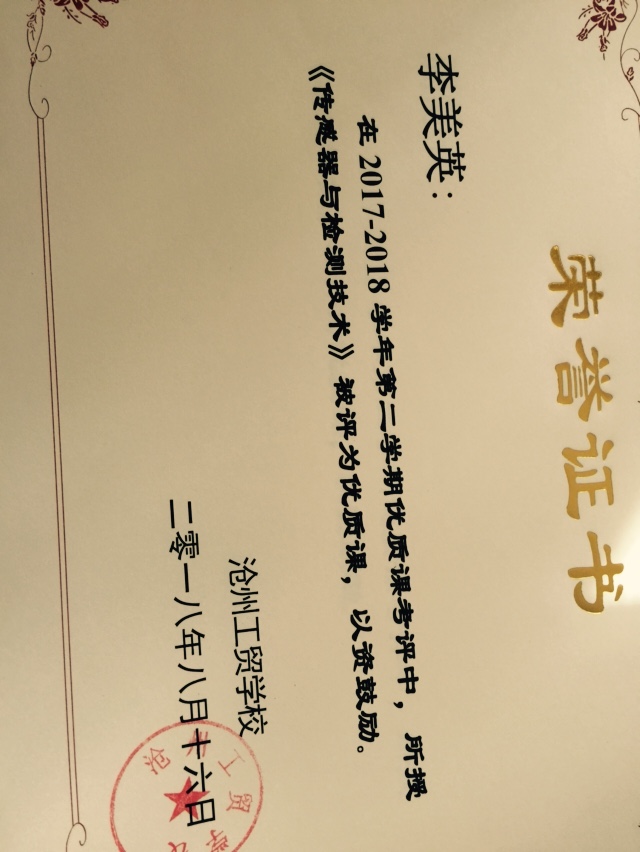 荣誉证书
李美英：
在 2017-2018 学年第二学期优质课考评中，所授
《传感器与检测技术》被评为优质课，以资鼓励。
沧州工贸学校
二零一八年八月十六日